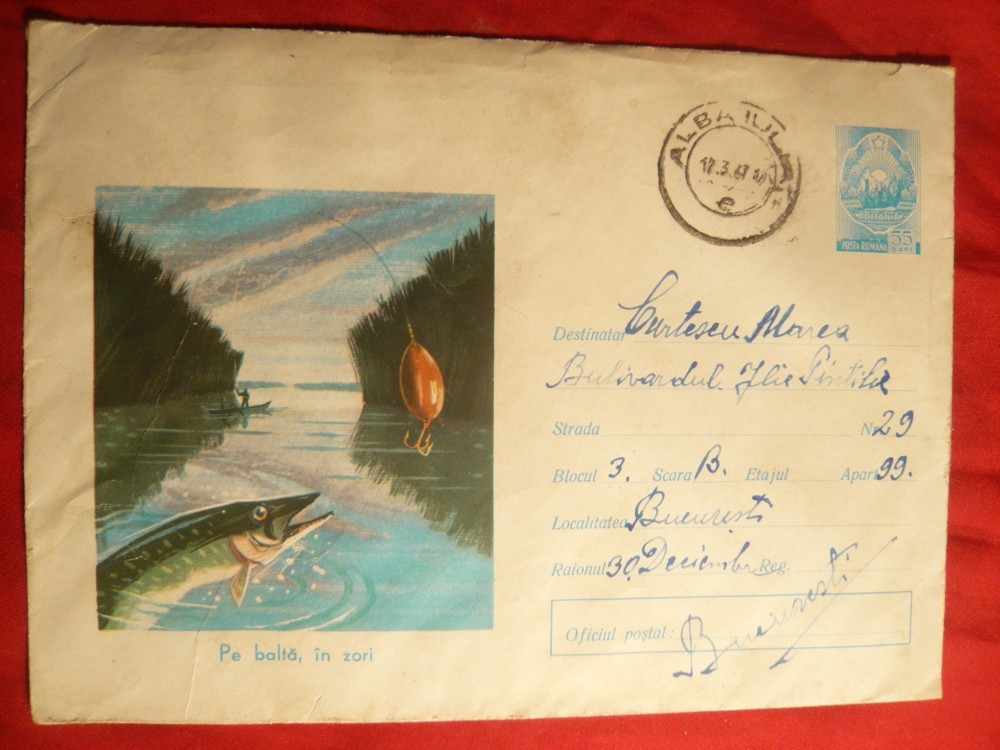 ALBA IULIA
17.3.67
e
ROMANIA
POSTA ROMANA 55 BANI
Destinatar Curtescu Maria
Bulivardul Ilie Pintilie
Strada Nr. 29
Blocul 3. Scara B. Etajul Apart. 99.
Localitatea București
Raionul 30 Deciembr Reg.
Oficiul poștal: București
Pe baltă, în zori